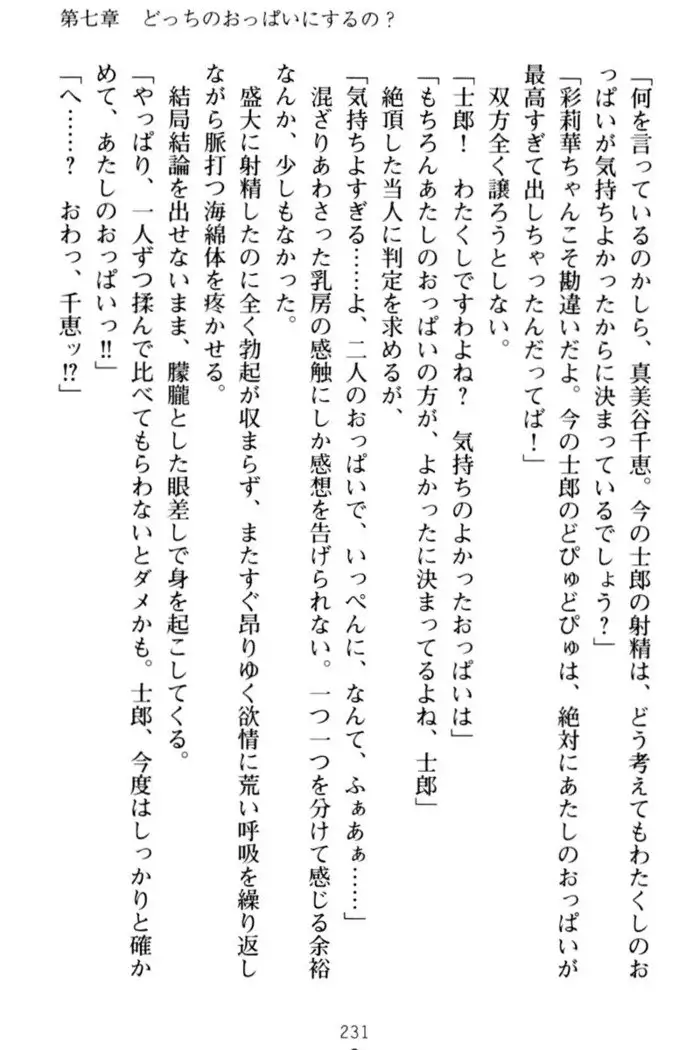 第七章　どっちのおっぱいにするの？
「何を言っているのかしら、真美谷千恵。今の士郎の射精は、どう考えてもわたくしのお
っぱいが気持ちよかったからに決まっているでしょう？」
「彩莉華ちゃんこそ勘違いだよ。今の士郎のどぴゅどぴゅは、絶対にあたしのおっぱいが
最高すぎて出しちゃったんだってば！」
　双方全く譲ろうとしない。
「士郎！　わたくしですわよね？　気持ちのよかったおっぱいは」
「もちろんあたしのおっぱいの方が、よかったに決まってるよね、士郎」
　絶頂した当人に判定を求めるが、
「気持ちよすぎる……よ、二人のおっぱいで、いっぺんに、なんて、ふぁあぁ……」
　混ざりあわさった乳房の感触にしか感想を告げられない。一つ一つを分けて感じる余裕
なんか、少しもなかった。
　盛大に射精したのに全く勃起が収まらず、またすぐ昂りゆく欲情に荒い呼吸を繰り返し
ながら脈打つ海綿体を疼かせる。
　結局結論を出せないまま、朦朧とした眼差しで身を起こしてくる。
「やっぱり、一人ずつ揉んで比べてもらわないとダメかも。士郎、今度はしっかりと確か
めて、あたしのおっぱいっ！！
「へ……？　おわっ、千恵ッ！？」
231